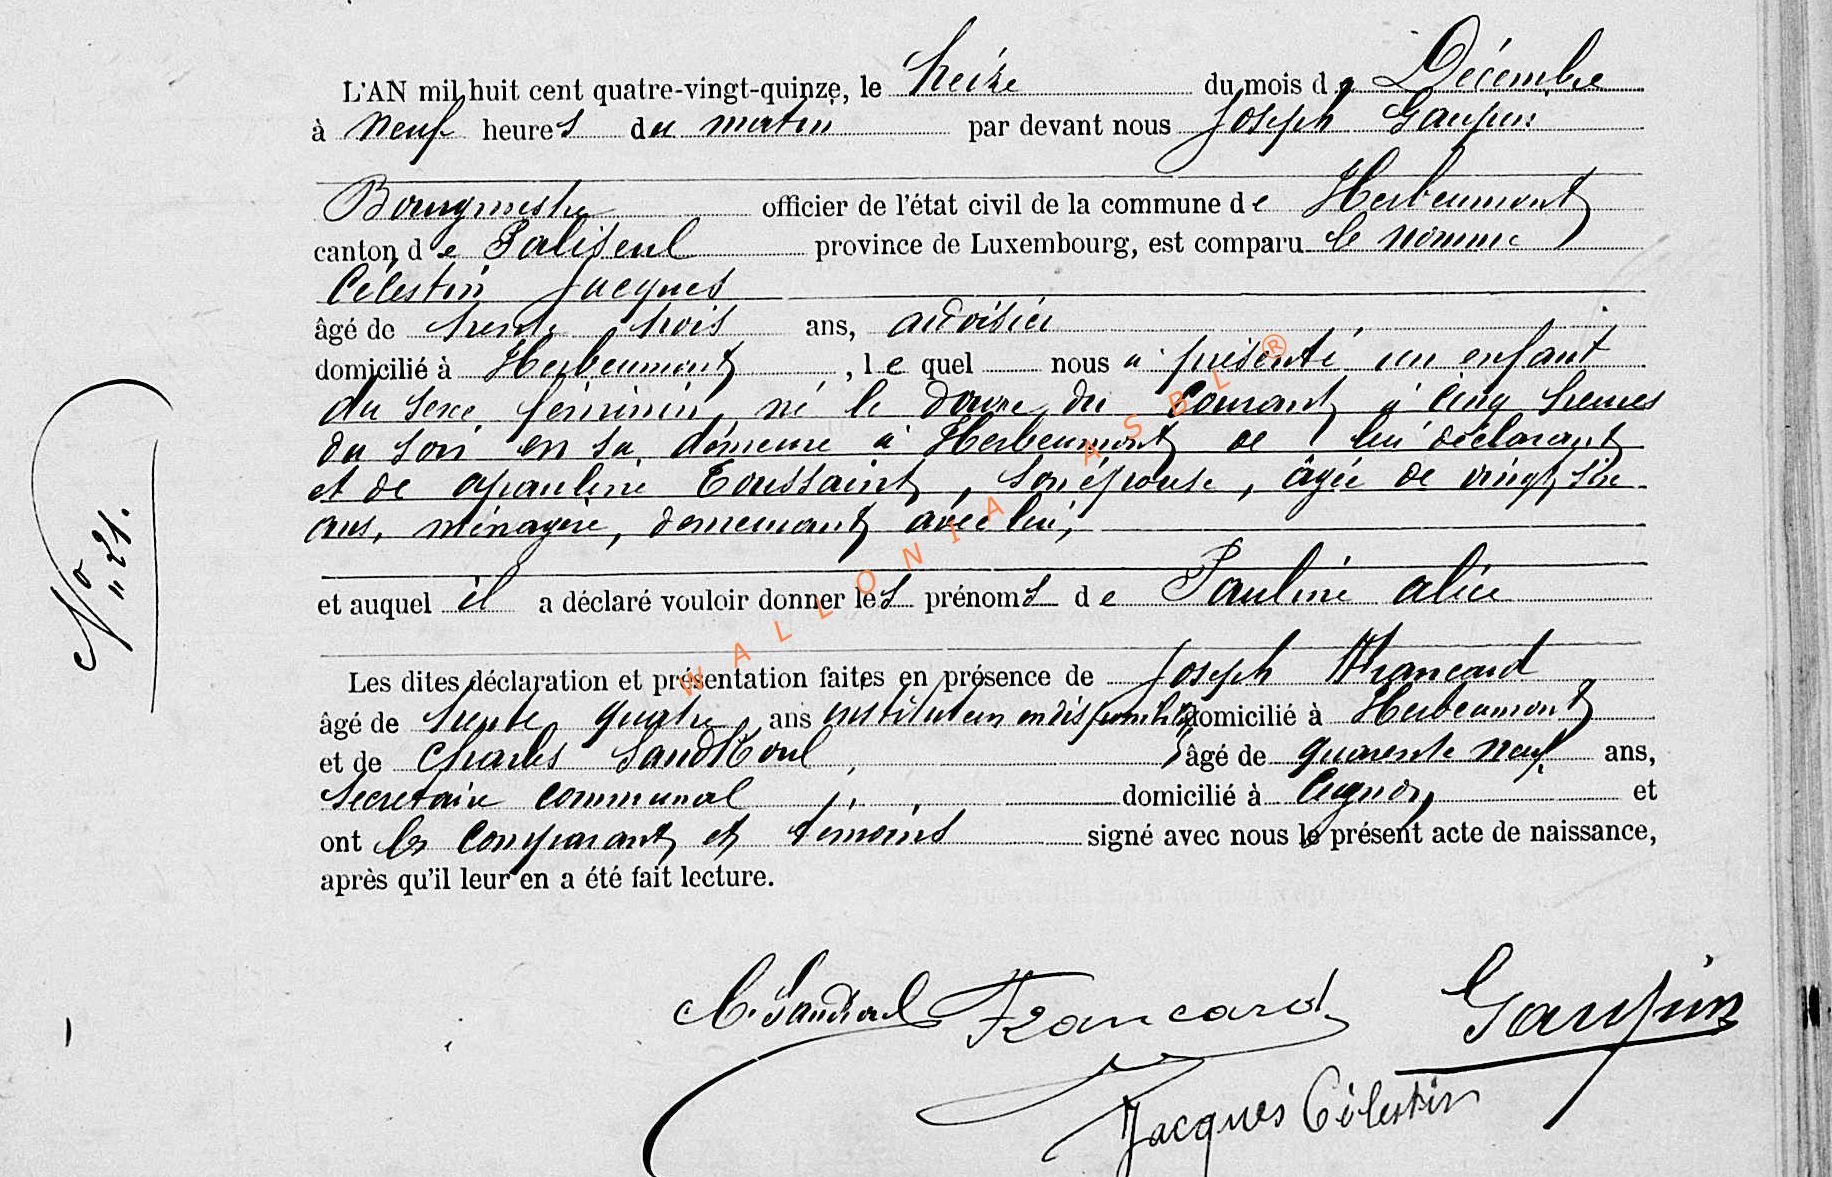 L'AN mil huit cent quatre-vingt-quinze, le treize du mois de Décembre
à neuf heures du matin par devant nous Joseph Gaupin
Bourgmestre officier de l'état civil de la commune de Herbeumont
canton de Paliseul province de Luxembourg, est comparu le nommé
Célestin Jacques
âgé de trente trois ans, ardoisier
domicilié à Herbeumont, lequel nous a présenté un enfant
du sexe féminin, né le douze du courant à cinq heures
du soir en sa demeure à Herbeumont de lui déclarant
et de apauline Toussaint, son épouse, âgée de vingt six
ans, ménagère, demeurant avec lui,
et auquel il a déclaré vouloir donner les prénoms de Pauline alice
Les dites déclaration et présentation faites en présence de Joseph Francard
âgé de trente quatre ans instituteur en disponibilité domicilié à Herbeumont
et de Charles Sandkoul, âgé de quarante neuf ans,
Secretaire communal domicilié à Cugnon, et
ont les comparant et témoins signé avec nous le présent acte de naissance,
après qu'il leur en a été fait lecture.
No 21.
C. Sandkoul Francard Gaupin
Jacques Célestin
WALLONIA ASBL ®